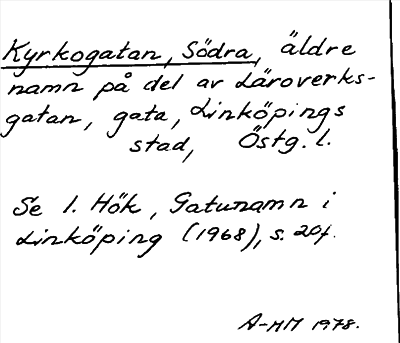 Kyrkogatan, Södra, äldre
namn på del av Läroverks-
gatan, gata, Linköpings
stad, Östg. l.
Se I. Hök, Gatunamn i
Linköping (1968), s. 20f.
A-HM 1978.